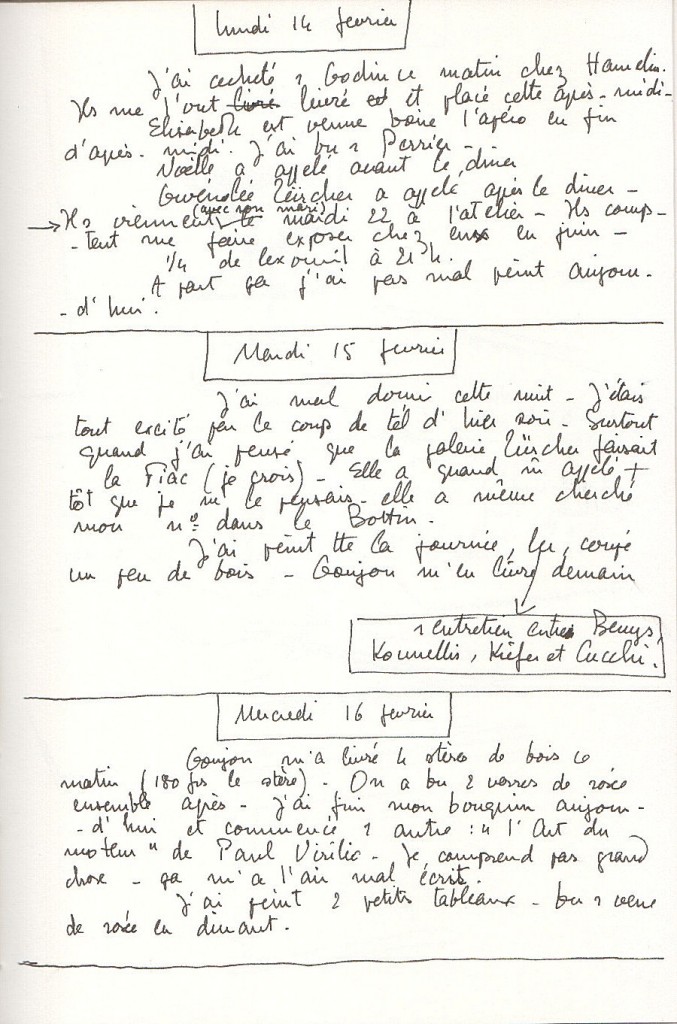 lundi 14 fevrier
J'ai acheté 1 Godin ce matin chez Hamelin.
Ils me l'ont livré livré et et placé cette après-midi-
Elisabeth est venue boire l'apéro en fin
d'après-midi. J'ai bu 1 Perrier -
Noëlle a appelé avant le diner
Gwenolée Zürcher a appelé après le diner -
→ Ils viennent (avec son mari) le mardi 22 à l'atelier - Ils comp-
- tent me faire exposer chez eux en juin -
1/4 de lexomil à 21h.
A part ça j'ai pas mal peint aujour-
- d'hui.
Mardi 15 fevrier
J'ai mal dormi cette nuit - J'étais
tout excité par le coup de tél d'hier soir - Surtout
quand j'ai pensé que la galerie Zürcher faisait
la Fiac (je crois) - Elle a quand m appelé +
tôt que je ne le pensais - elle a même cherché
mon n° dans le Bottin -
J'ai peint tte la journée, lu, coupé
un peu de bois - Goujon m'en livre demain
1 entretien entre Beuys,
Kounellis, Kiefer et Cucchi.
Mercredi 16 fevrier
Goujon m'a livré 4 stères de bois ce
matin (180 frs le stère) - On a bu 2 verres de rosé
ensemble après - J'ai fini mon bouquin aujour-
- d'hui et commencé 1 autre : " l'Art du
moteur " de Paul Virilio - Je comprend pas grand
chose - ça m'a l'air mal écrit.
J'ai peint 2 petits tableaux - bu 1 verre
de rosée en dinant.